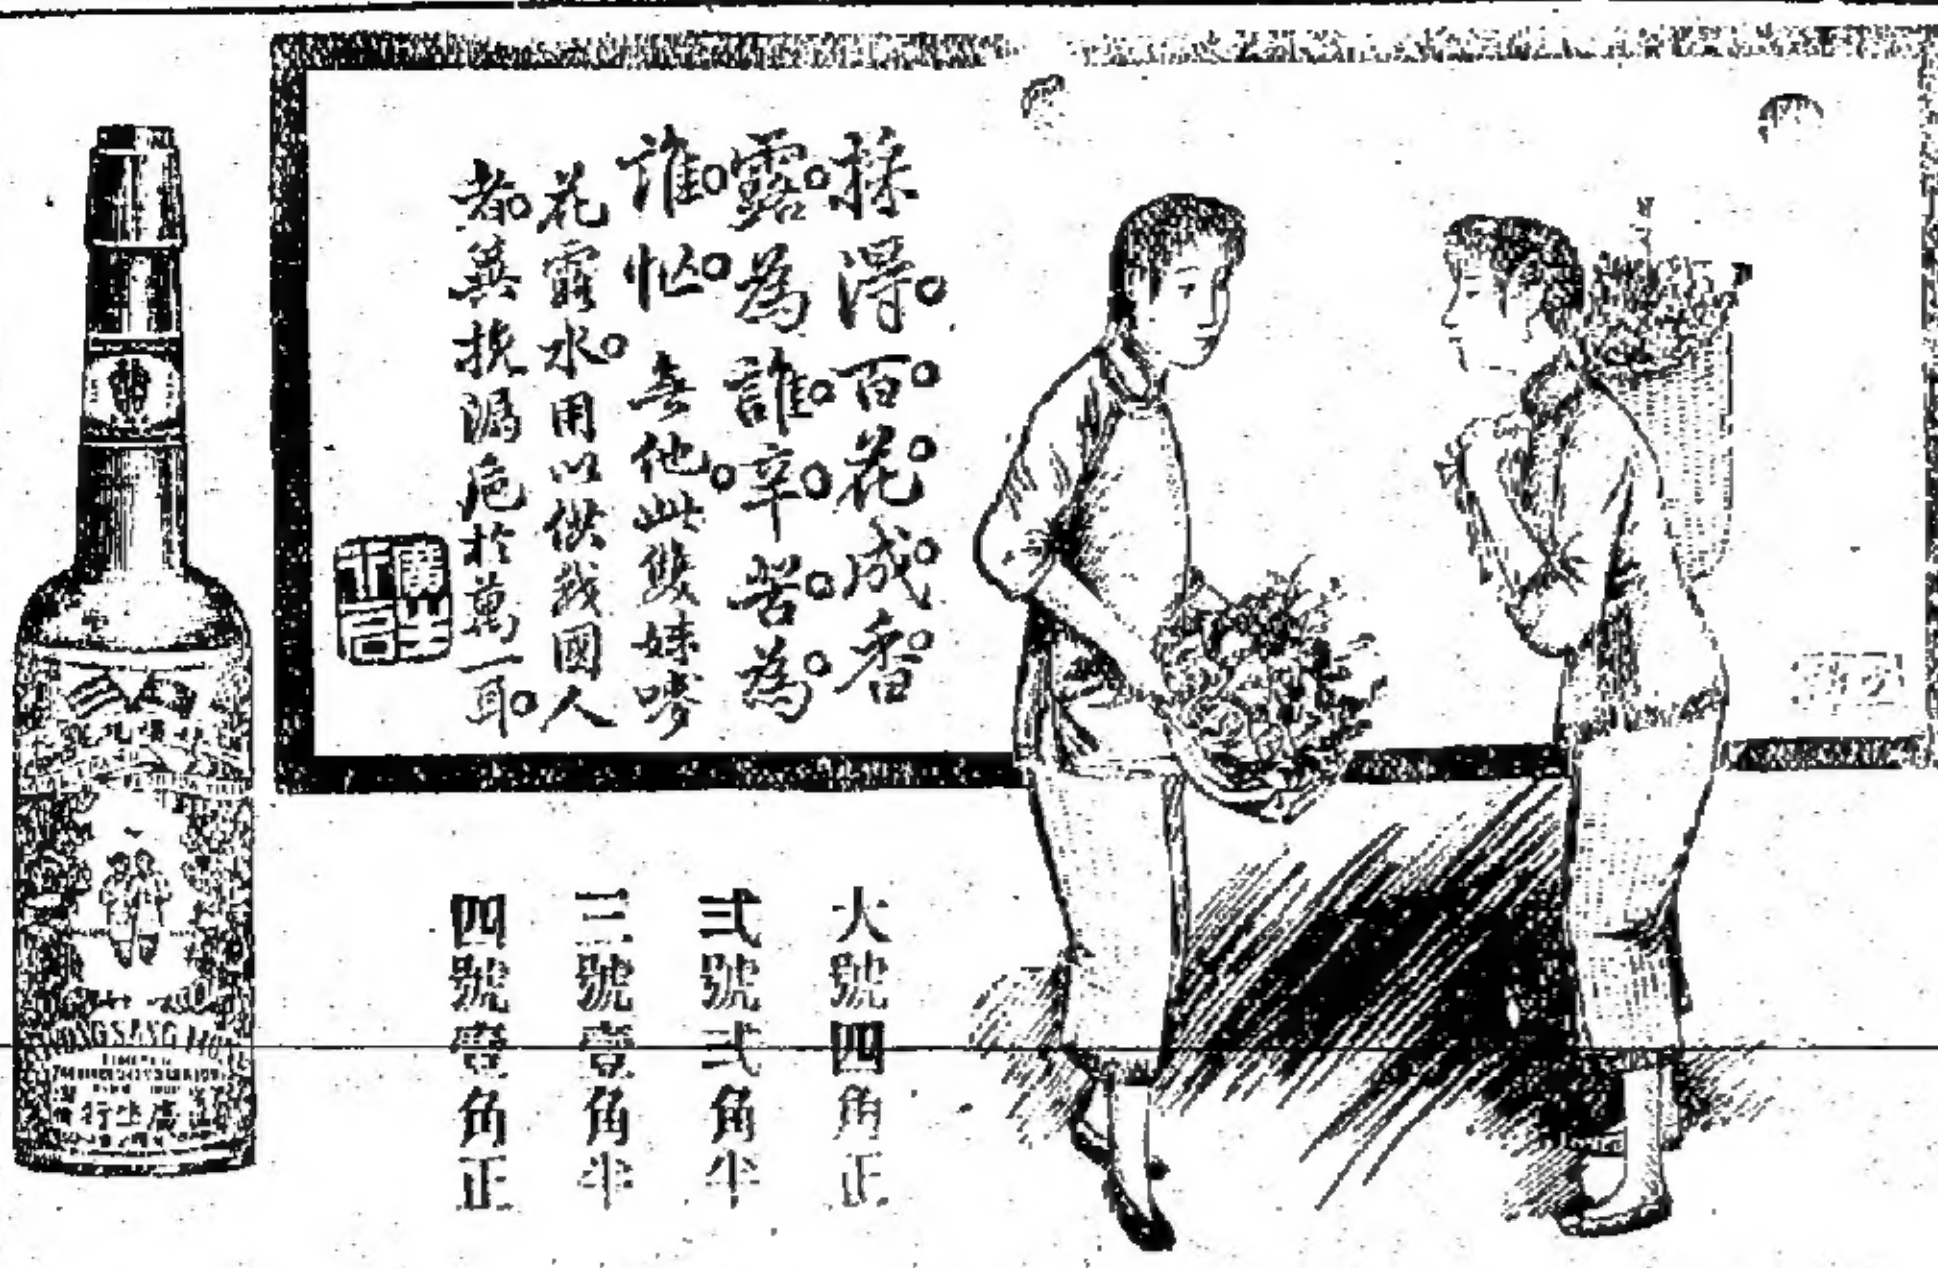 採得百花成香
露為誰辛苦為
誰忙 無他。此雙妹嘜
花露水。用以供我國人
者。冀挽漏卮於萬一耳。
廣生行
大號四角正
弍號弍角半
三號壹角半
四號壹角正
SANG
廣生行